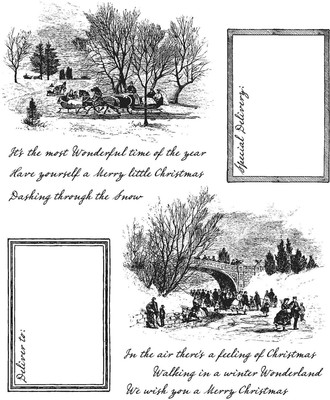 Special Delivery:
It's the most Wonderful time of the year
Have yourself a Merry little Christmas
Dashing through the Snow
Deliver to:
In the air there's a feeling of Christmas
Walking in a winter Wonderland
We wish you a Merry Christmas